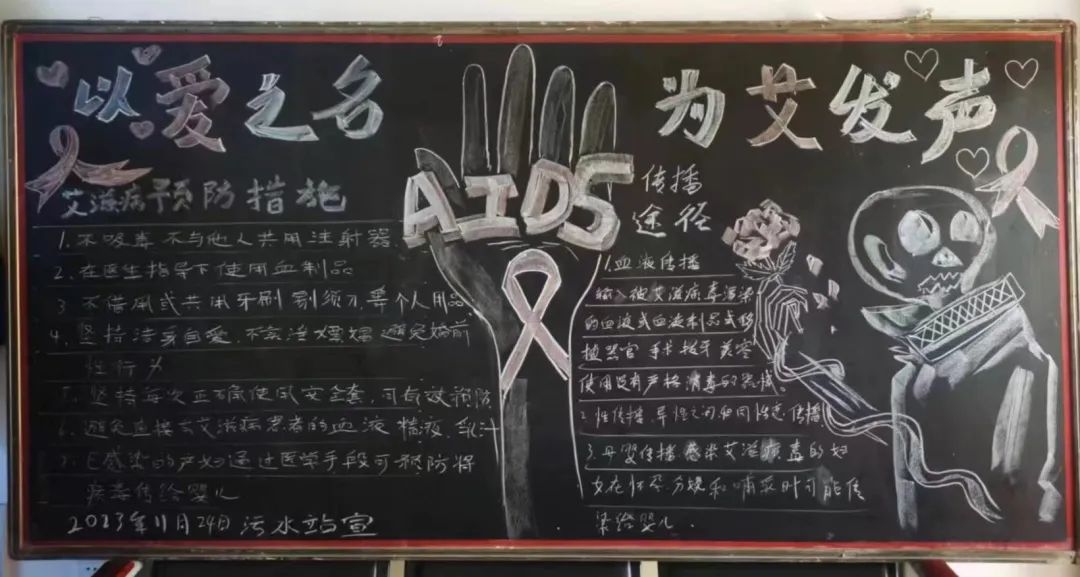 以爱之名
为艾发声
AIDS
艾滋病预防措施
1. 不吸毒不与他人共用注射器
2. 在医生指导下使用血制品
3 不借用或共用牙刷 剃须刀等个人用品
4. 坚持洁身自爱、不 避免婚前
性行为
5. 坚持每次正确使用安全套,可有效预防
6. 避免直接与艾滋病患者的血液 精液、乳汁
7. 已感染的产妇通过医学手段可预防将
病毒传给婴儿
2023年11月24日 污水站宣
传播
途径
1.血液传播
输入被艾滋病毒污染
的血液或血液制品或移
植器官 手术拔牙 美容
使用没有严格消毒的器械
2.性传播、异性之间和同性恋传播
3.母婴传播 感染艾滋病毒的妇
女在怀孕、分娩和哺乳时可能传
染给婴儿.